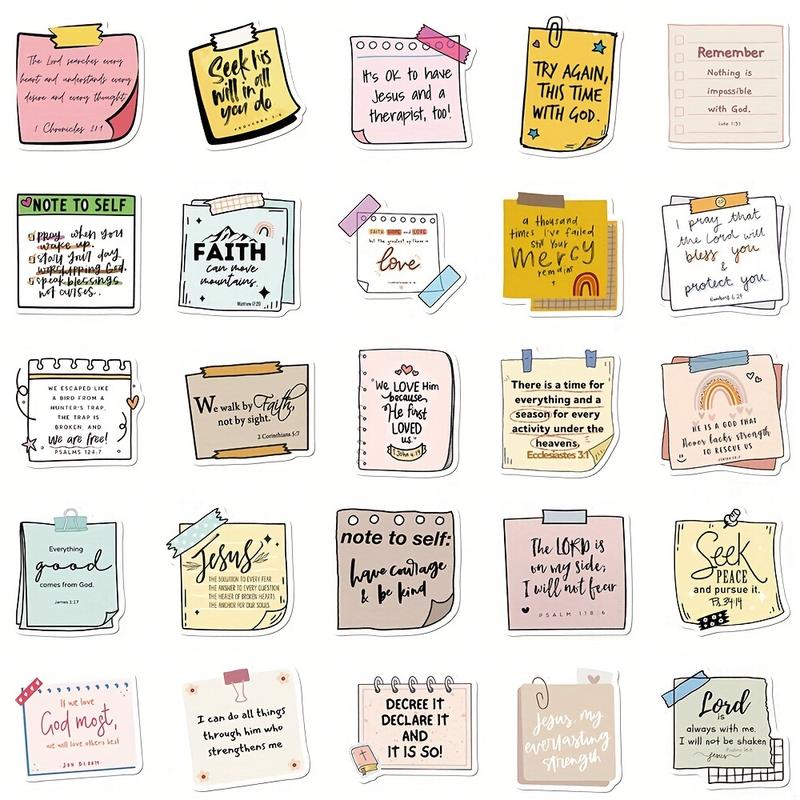 The Lord searches every
heart and understands every
desire and every thought.
1 Chronicles 28:9
Seek his
will in all
you do
PROVERBS 3:6
It's OK to have
Jesus and a
therapist, too!
TRY AGAIN,
THIS TIME
WITH GOD.
Remember
Nothing is
impossible
with God.
Luke 1:37
NOTE TO SELF
pray when you
wake up.
start your day
worshipping God.
speak blessings
not curses.
FAITH
can move
mountains.
Matthew 17:20
FAITH HOPE and LOVE
but the greatest of these is
love
a thousand
times I've failed
Still Your
Mercy
remains
I pray that
the Lord will
bless you
&
protect you
Numbers 6:24
WE ESCAPED LIKE
A BIRD FROM A
HUNTER'S TRAP.
THE TRAP IS
BROKEN, AND
we are free!
PSALMS 124:7
We walk by Faith,
not by sight.
2 Corinthians 5:7
"We LOVE Him
because,
He first
LOVED
us."
1 John 4:19
There is a time for
everything and a
season for every
activity under the
heavens.
Ecclesiastes 3:1
HE IS A GOD THAT
Never lacks strength
TO RESCUE US
Everything
good
comes from God.
James 1:17
Jesus
THE SOLUTION TO EVERY FEAR
THE ANSWER TO EVERY QUESTION
THE HEALER OF BROKEN HEARTS
THE ANCHOR FOR OUR SOULS
note to self:
have courage
& be kind
The LORD is
on my side;
I will not fear
PSALM 118:6
Seek
PEACE
and pursue it.
Ps. 34:14
If we love
God most,
we will love others best
JON BLOOM
I can do all things
through him who
strengthens me
DECREE IT
DECLARE IT
AND
IT IS SO!
Jesus, my
everlasting
strength
Lord
is
always with me.
I will not be shaken
Psalms 16:8
Jesus